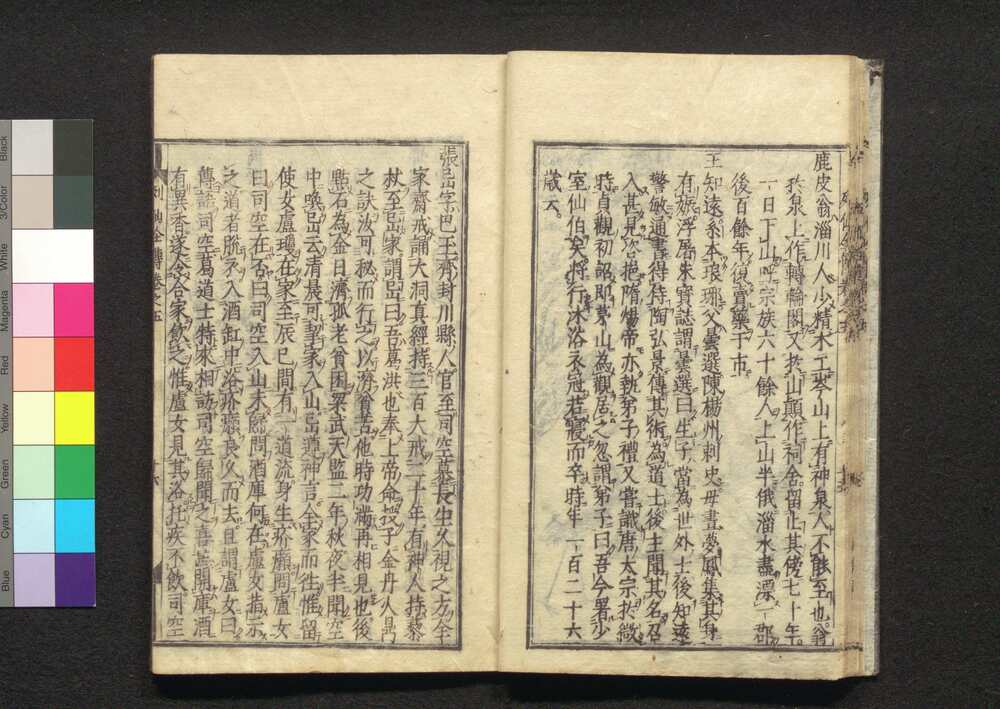 鹿皮翁淄川人少精木工岑山上有神泉人不能至也翁
於泉上作轉輪閣又於山巔作祠舍留止其傍七十年
一日下山呼宗族六十餘人上山半俄淄水盡漂一郡
後百餘年復賣藥于市
王知遠系本琅琊父曇選陳楊州刺史母晝夢鳳集其身
有娠浮屠朱寶誌謂曇選曰生子當為世外士後知遠
警敏通書得侍陶弘景傳其術為道士後主聞其名召
入甚見咨挹隋煬帝亦執弟子禮又嘗識唐太宗於微
時貞觀初詔即茅山為觀居之忽謂弟子曰吾今署少
室仙伯矣將行沐浴衣冠若寢而卒時年一百二十六
歲云
張岊字巴王齊封川縣人官至司空慕長生久視之方全
家齋戒誦大洞真經持三百大戒二十年有神人持藜
杖至岊家謂岊曰吾葛洪也奉上帝命授子金丹火昺
之訣汝可秘而行之以濟貧苦他時功滿再相見也後
點石為金日濟孤老貧困梁武天監二年秋夜半聞空
中喚岊云清晨可挈家入山岊遵神言全家而往惟留
使女盧瓊在家至辰巳間有一道流身生疥癩問盧女
曰司空在否曰司空入山未歸問酒庫何在盧女指示
之道者脫衣入酒缸中浴疥癩良久而去且謂盧女曰
傳語司空葛道士特來相訪司空歸聞之喜開庫酒
有異香遂令合家飲之惟盧女見其浴托疾不飲司空
列仙全傳卷之五
十六
Black
3/Color
White
Magenta
Red
Yellow
Green
Cyan
Blue